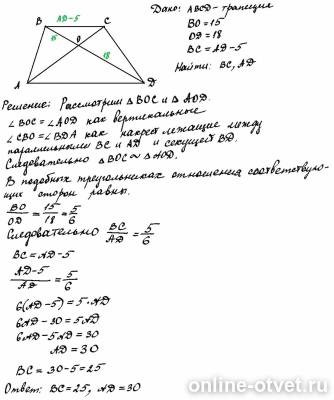 AD-5
B
C
15
O
18
A
D
Дано: ABCD - трапеция
BO = 15
OD = 18
BC = AD - 5
Найти: BC, AD
Решение: Рассмотрим △BOC и △AOD.
∠BOC = ∠AOD как вертикальные
∠CBO = ∠BDA как накрест лежащие между
параллельными BC и AD и секущей BD.
Следовательно △BOC ∾ △AOD.
В подобных треугольниках отношения соответствую-
щих сторон равны.
BO/OD = 15/18 = 5/6
Следовательно BC/AD = 5/6
BC = AD - 5
AD-5/AD = 5/6
6(AD-5) = 5·AD
6AD - 30 = 5AD
6AD - 5AD = 30
AD = 30
BC = 30 - 5 = 25
Ответ: BC = 25, AD = 30
online-otvet.ru